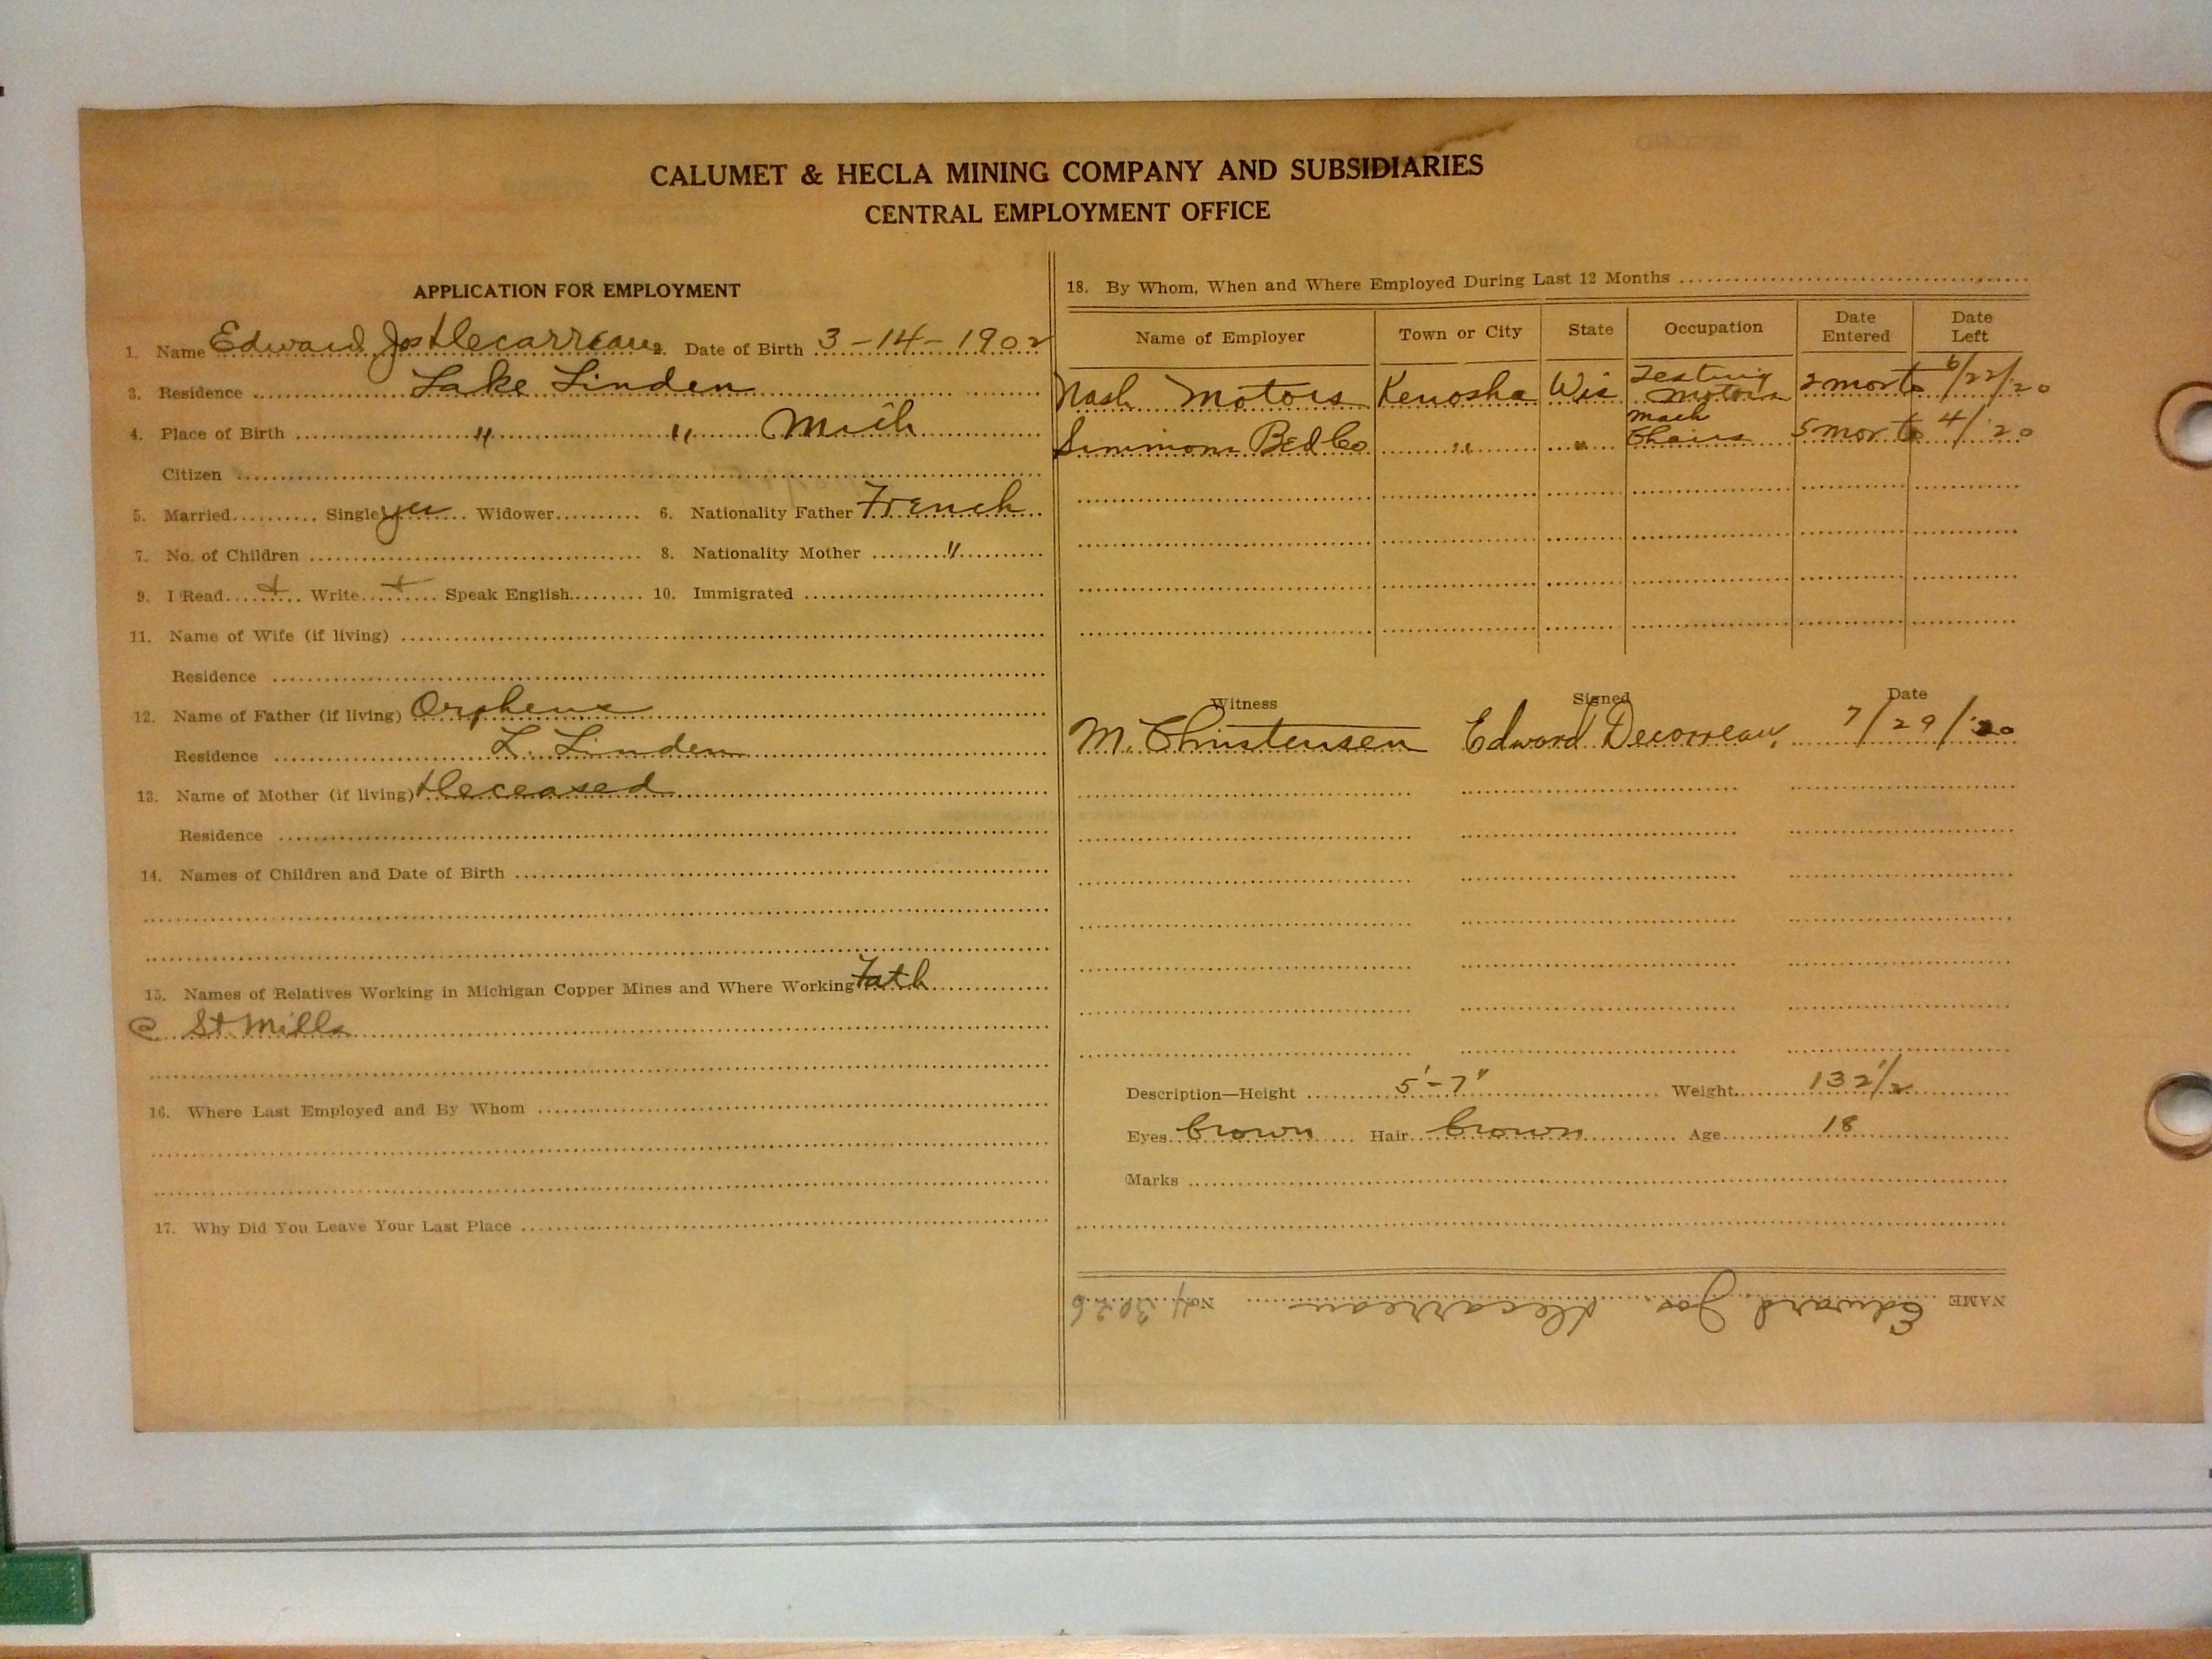 CALUMET & HECLA MINING COMPANY AND SUBSIDIARIES
CENTRAL EMPLOYMENT OFFICE
APPLICATION FOR EMPLOYMENT
1. Name Edward Jos Decarreau 2. Date of Birth 3-14-1902
3. Residence Lake Linden
4. Place of Birth " " Mich
Citizen
5. Married Single yes Widower 6. Nationality Father French
7. No. of Children 8. Nationality Mother "
9. I Read + Write + Speak English 10. Immigrated
11. Name of Wife (if living)
Residence
12. Name of Father (if living) Orpheus
Residence L. Linden
13. Name of Mother (if living) Deceased
Residence
14. Names of Children and Date of Birth
15. Names of Relatives Working in Michigan Copper Mines and Where Working Fath
@ St. Mills
16. Where Last Employed and By Whom
17. Why Did You Leave Your Last Place
18. By Whom, When and Where Employed During Last 12 Months
Name of Employer Town or City State Occupation Date Entered Date Left
Nash Motors Kenosha Wis Testing Motors 2 mos to 6/22/20
Simmons Bed Co " " Mach Chairs 5 mos to 4/ 20
Witness Signed Date
M. Christensen Edward Decorreau 7/29/20
Description—Height 5'-7" Weight 132 1/2
Eyes brown Hair brown Age 18
Marks
NAME Edward Jos. Decarreau No.